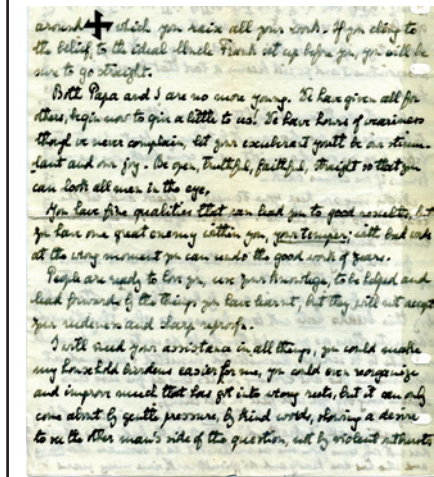 around which you raise all your work. If you cling to
the belief, to the ideal Uncle Frank set up before you, you will be
sure to go straight.
Both Papa and I are no more young. We have given all for
others, begin now to give a little to us! We have hours of weariness
though we never complain, let your exuberant youth be our stimu-
lant and our joy. Be open, truthful, faithful, straight so that you
can look all men in the eye.
You have fine qualities that can lead you to good results, but
you have one great enemy within you, your temper; with bad words
at the wrong moment you can undo the good work of years.
People are ready to love you, use your knowledge, to be helped and
lead forwards by the things you have learnt, but they will not accept
your rudeness and sharp reproofs.
I will need your assistance in all things, you could make
my household burdens easier for me, you could even reorganize
and improve much that has got into wrong ruts, but it can only
come about by gentle pressure, by kind words, showing a desire
to see the other man's side of the question, not by violent outbursts